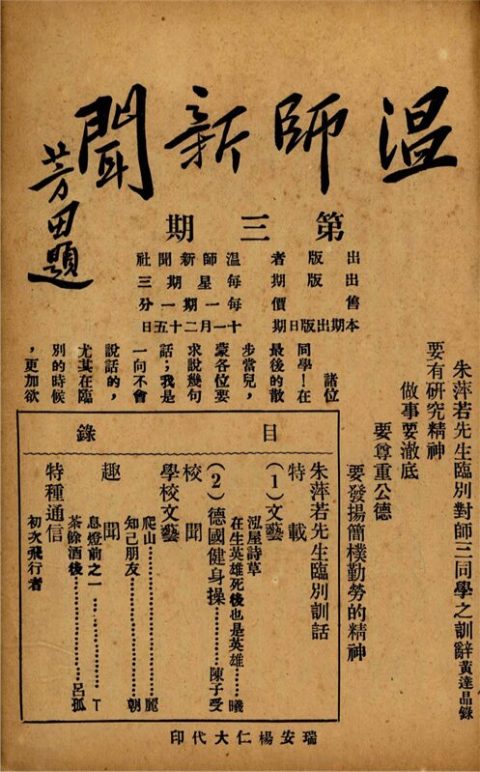 温師新聞
芳田題
第三期
出版者 溫師新聞社
出版期 每星期三
售價 每期一分
本期出版日期 十一月二十五日
朱萍若先生臨別對師三同學之訓辭 黃達品錄
要有研究精神
做事要澈底
要尊重公德
要發揚簡樸勤勞的精神
諸位
同學!在
最後的散
步當兒,
蒙各位要
求說幾句
話;我是
一向不會
說話的,
尤其在臨
別的時候
,更加欲
目錄
特載
朱萍若先生臨別訓話
(1)文藝
泓屋詩草
在生英雄死後也是英雄……曦
(2)德國健身操……陳子受
校聞
學校文藝
爬山……麗
知己朋友……朝
趣聞
息燈前之一……T
茶餘酒後……呂孤
特種通信
初次飛行者
瑞安楊仁大代印